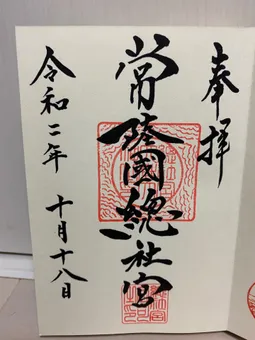 奉拝
常陸國總社宮
令和二年 十月十八日